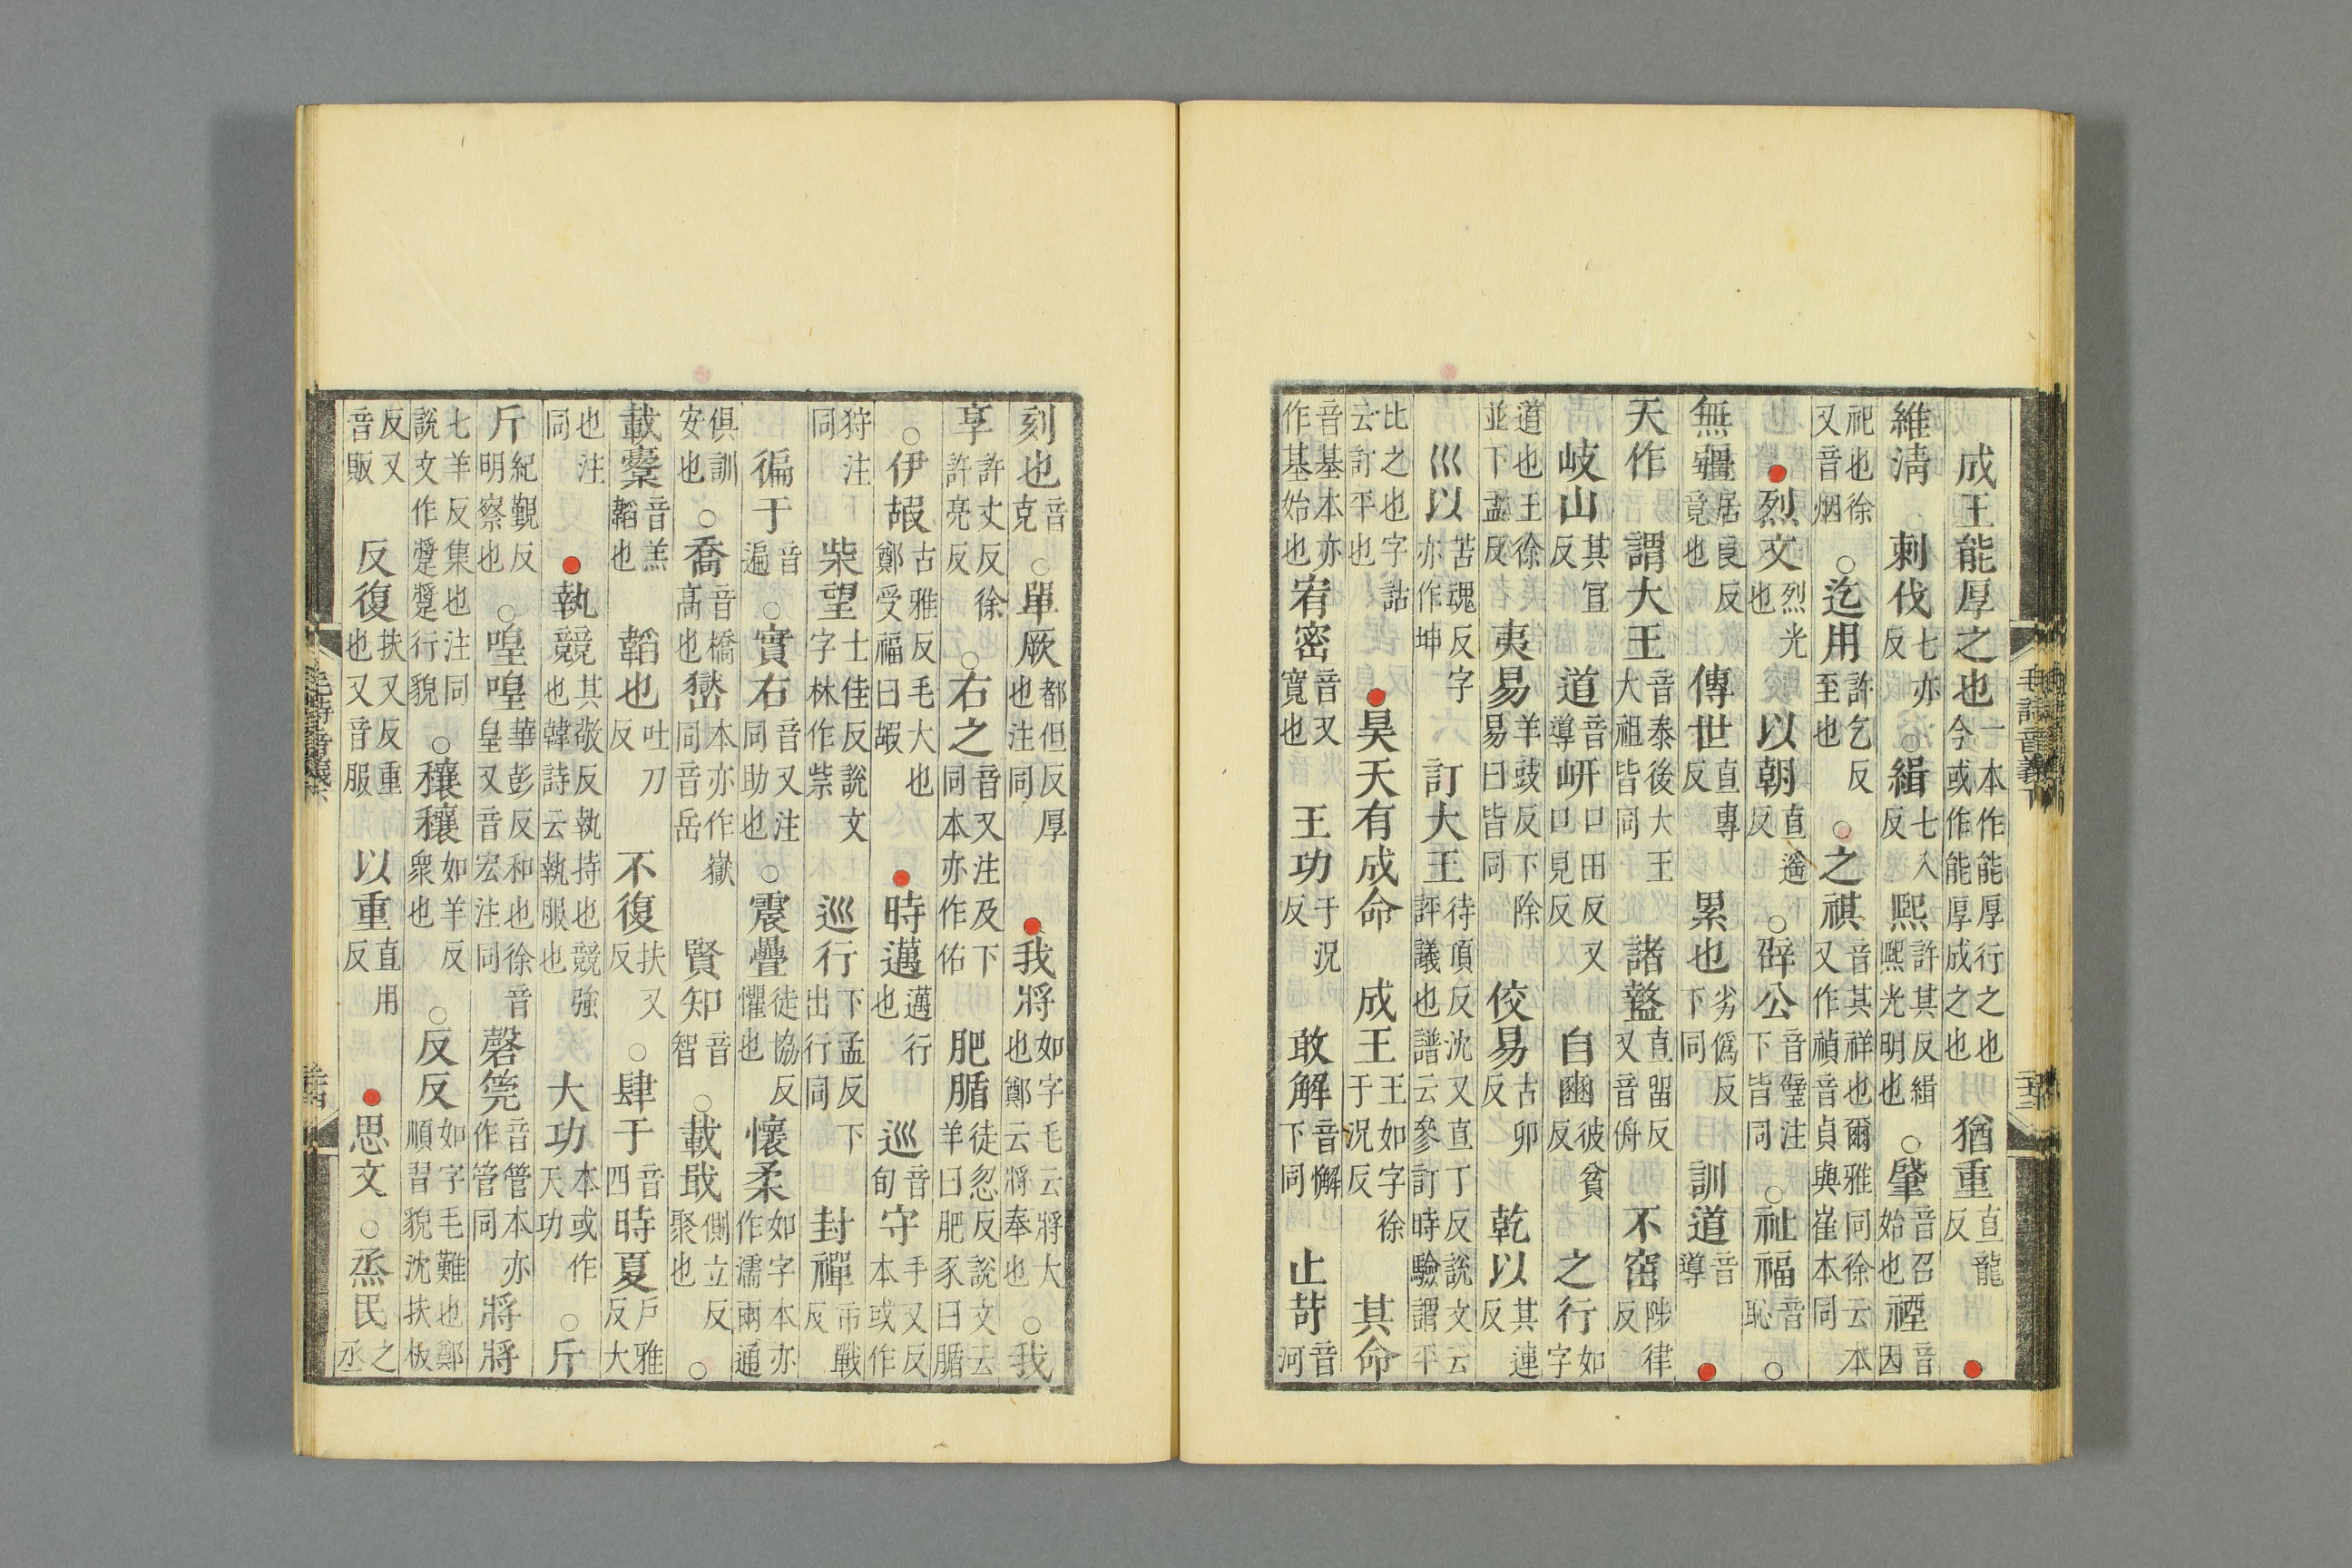 成王能厚之也一本作能厚行之也今或作能厚成之也猶重直龍反
維清刺伐七亦反○緝七入反熙許其反緝熙光明也○肇音召始也禋音因
祀也徐又音烟○迄用許乞反至也○之祺音其祥也爾雅同徐云本又作禎音貞與崔本同
烈文烈光也以朝直遙反○辟公音璧注下皆同○祉福音恥○
無疆居良反竟也傳世直專反累也劣僞反下同訓道音導
天作謂大王音泰後大王大祖皆同諸盩直留反又音俯不窋陟律反
岐山其宜反道音導岍口田反又口見反自豳彼貧反之行如字
道也王徐並下孟反夷易羊豉反下除易曰皆同佼易古卯反乾以其連反
巛以苦魂反字亦作坤訂大王待頂反沈又直丁反說文云評議也譜云參訂時驗謂平
比之也字詁云訂平也昊天有成命成王王如字徐于況反其命
音基本亦作基始也宥密音又寬也王功于況反敢解音懈下同止苛音河
毛詩音義下
刻也音克○單厥都但反厚也注同我將如字毛云將大也鄭云將奉也○我
享許丈反徐許亮反○右之音又注及下同本亦作佑肥腯徒忽反說文云羊曰肥豕曰腯
○伊嘏古雅反毛大也鄭受福曰嘏時邁邁行也巡音旬守手又反本或作
狩注同柴望士佳反說文字林作祡巡行下孟反下出行同封禪市戰反
徧于音遍○實右音又注同助也○震疊徒協反懼也懷柔如字本亦作濡兩通
俱訓安也○喬音橋高也嶽本亦作嶽同音岳賢知音智○載戢側立反聚也○
載櫜音羔韜也韜也吐刀反不復扶又反○肆于音四時夏戶雅反大
也注同執競其敬反執持也競強也韓詩云執服也大功本或作天功○斤
斤紀覲反明察也○喤喤華彭反和也徐音皇又音宏注同磬筦音管本亦作管同將將
七羊反集也注同說文作蹩蹩行貌○穰穰如羊反衆也○反反如字毛難也鄭順習貌沈扶板
反又音販反復扶又反重也又音服以重直用反思文○烝民之丞